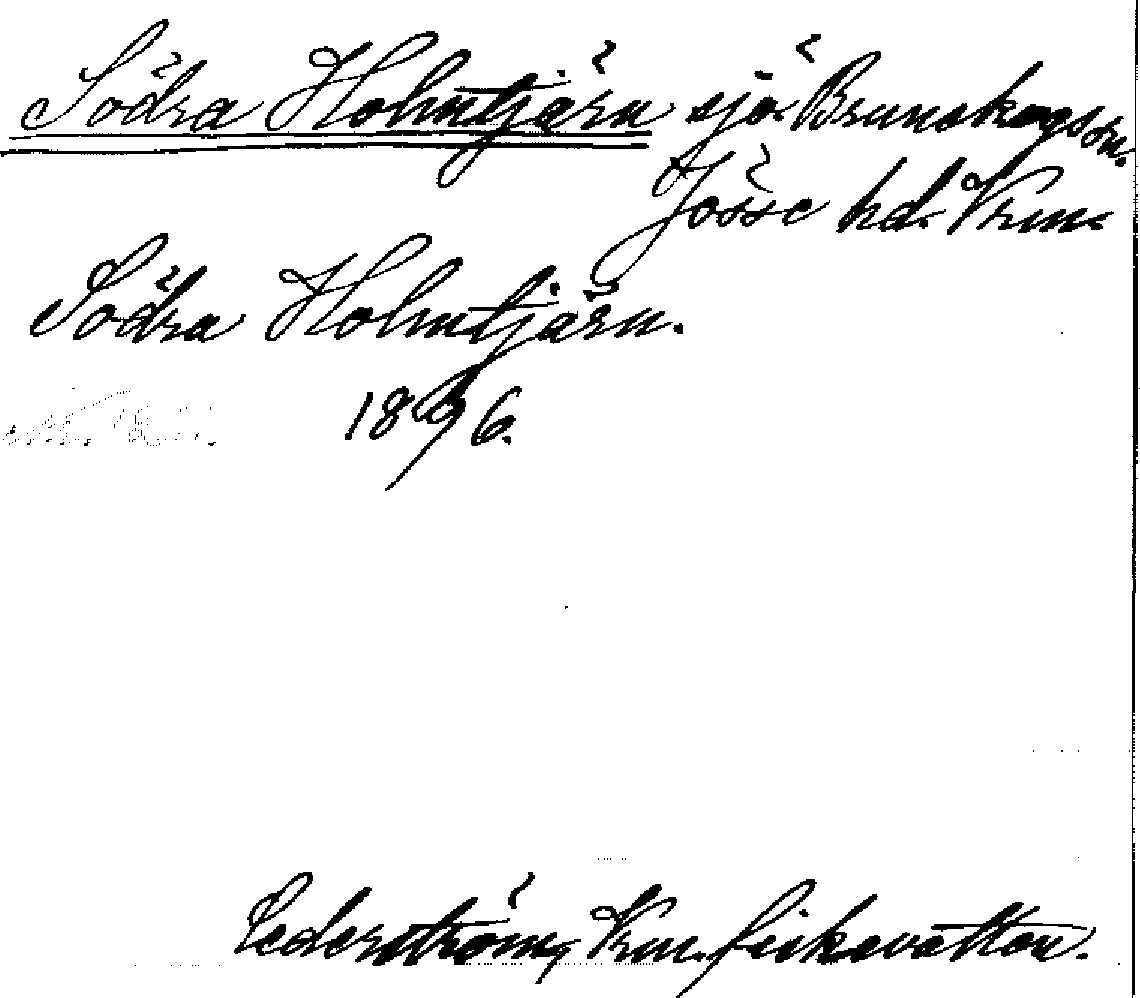 Södra Holmtjärn sjö i Brunskogs sn.
Jösse hd. Vrm.
Södra Holmtjärn.
1896.
Cederström, Vrm. fiskevatten.